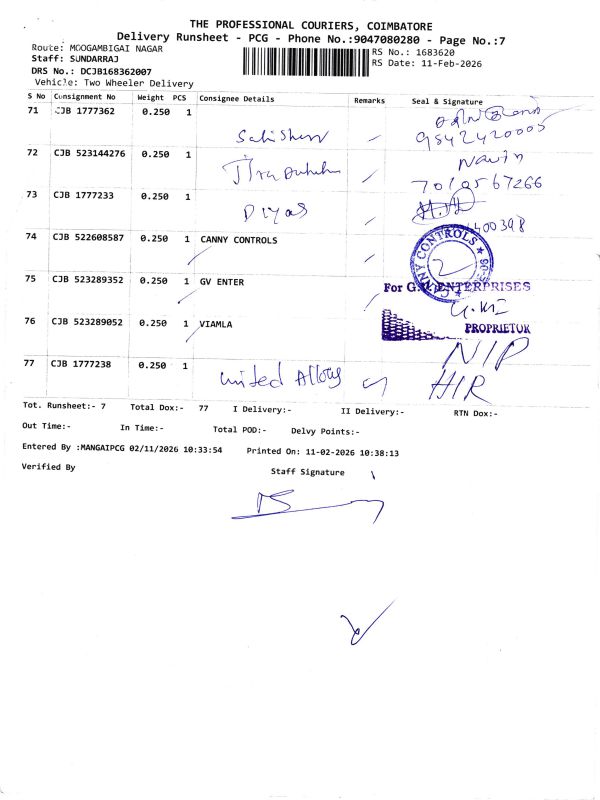 THE PROFESSIONAL COURIERS, COIMBATORE
Delivery Runsheet - PCG - Phone No.:9047080280 - Page No.:7
Route: MOOGAMBIGAI NAGAR
RS No.: 1683620
Staff: SUNDARRAJ
RS Date: 11-Feb-2026
DRS No.: DCJB168362007
Vehicle: Two Wheeler Delivery
S No Consignment No Weight PCS Consignee Details Remarks Seal & Signature
71 CJB 1777362 0.250 1
9842420005
72 CJB 523144276 0.250 1 Navin
7010567266
73 CJB 1777233 0.250 1 Diyas
400398
74 CJB 522608587 0.250 1 CANNY CONTROLS
CANNY CONTROLS
75 CJB 523289352 0.250 1 GV ENTER
For G.V. ENTERPRISES
76 CJB 523289052 0.250 1 VIAMLA
PROPRIETOR
77 CJB 1777238 0.250 1 United Alloys
N/P
H/R
Tot. Runsheet:- 7 Total Dox:- 77 I Delivery:- II Delivery:- RTN Dox:-
Out Time:- In Time:- Total POD:- Delvy Points:-
Entered By :MANGAIPCG 02/11/2026 10:33:54 Printed On: 11-02-2026 10:38:13
Verified By Staff Signature